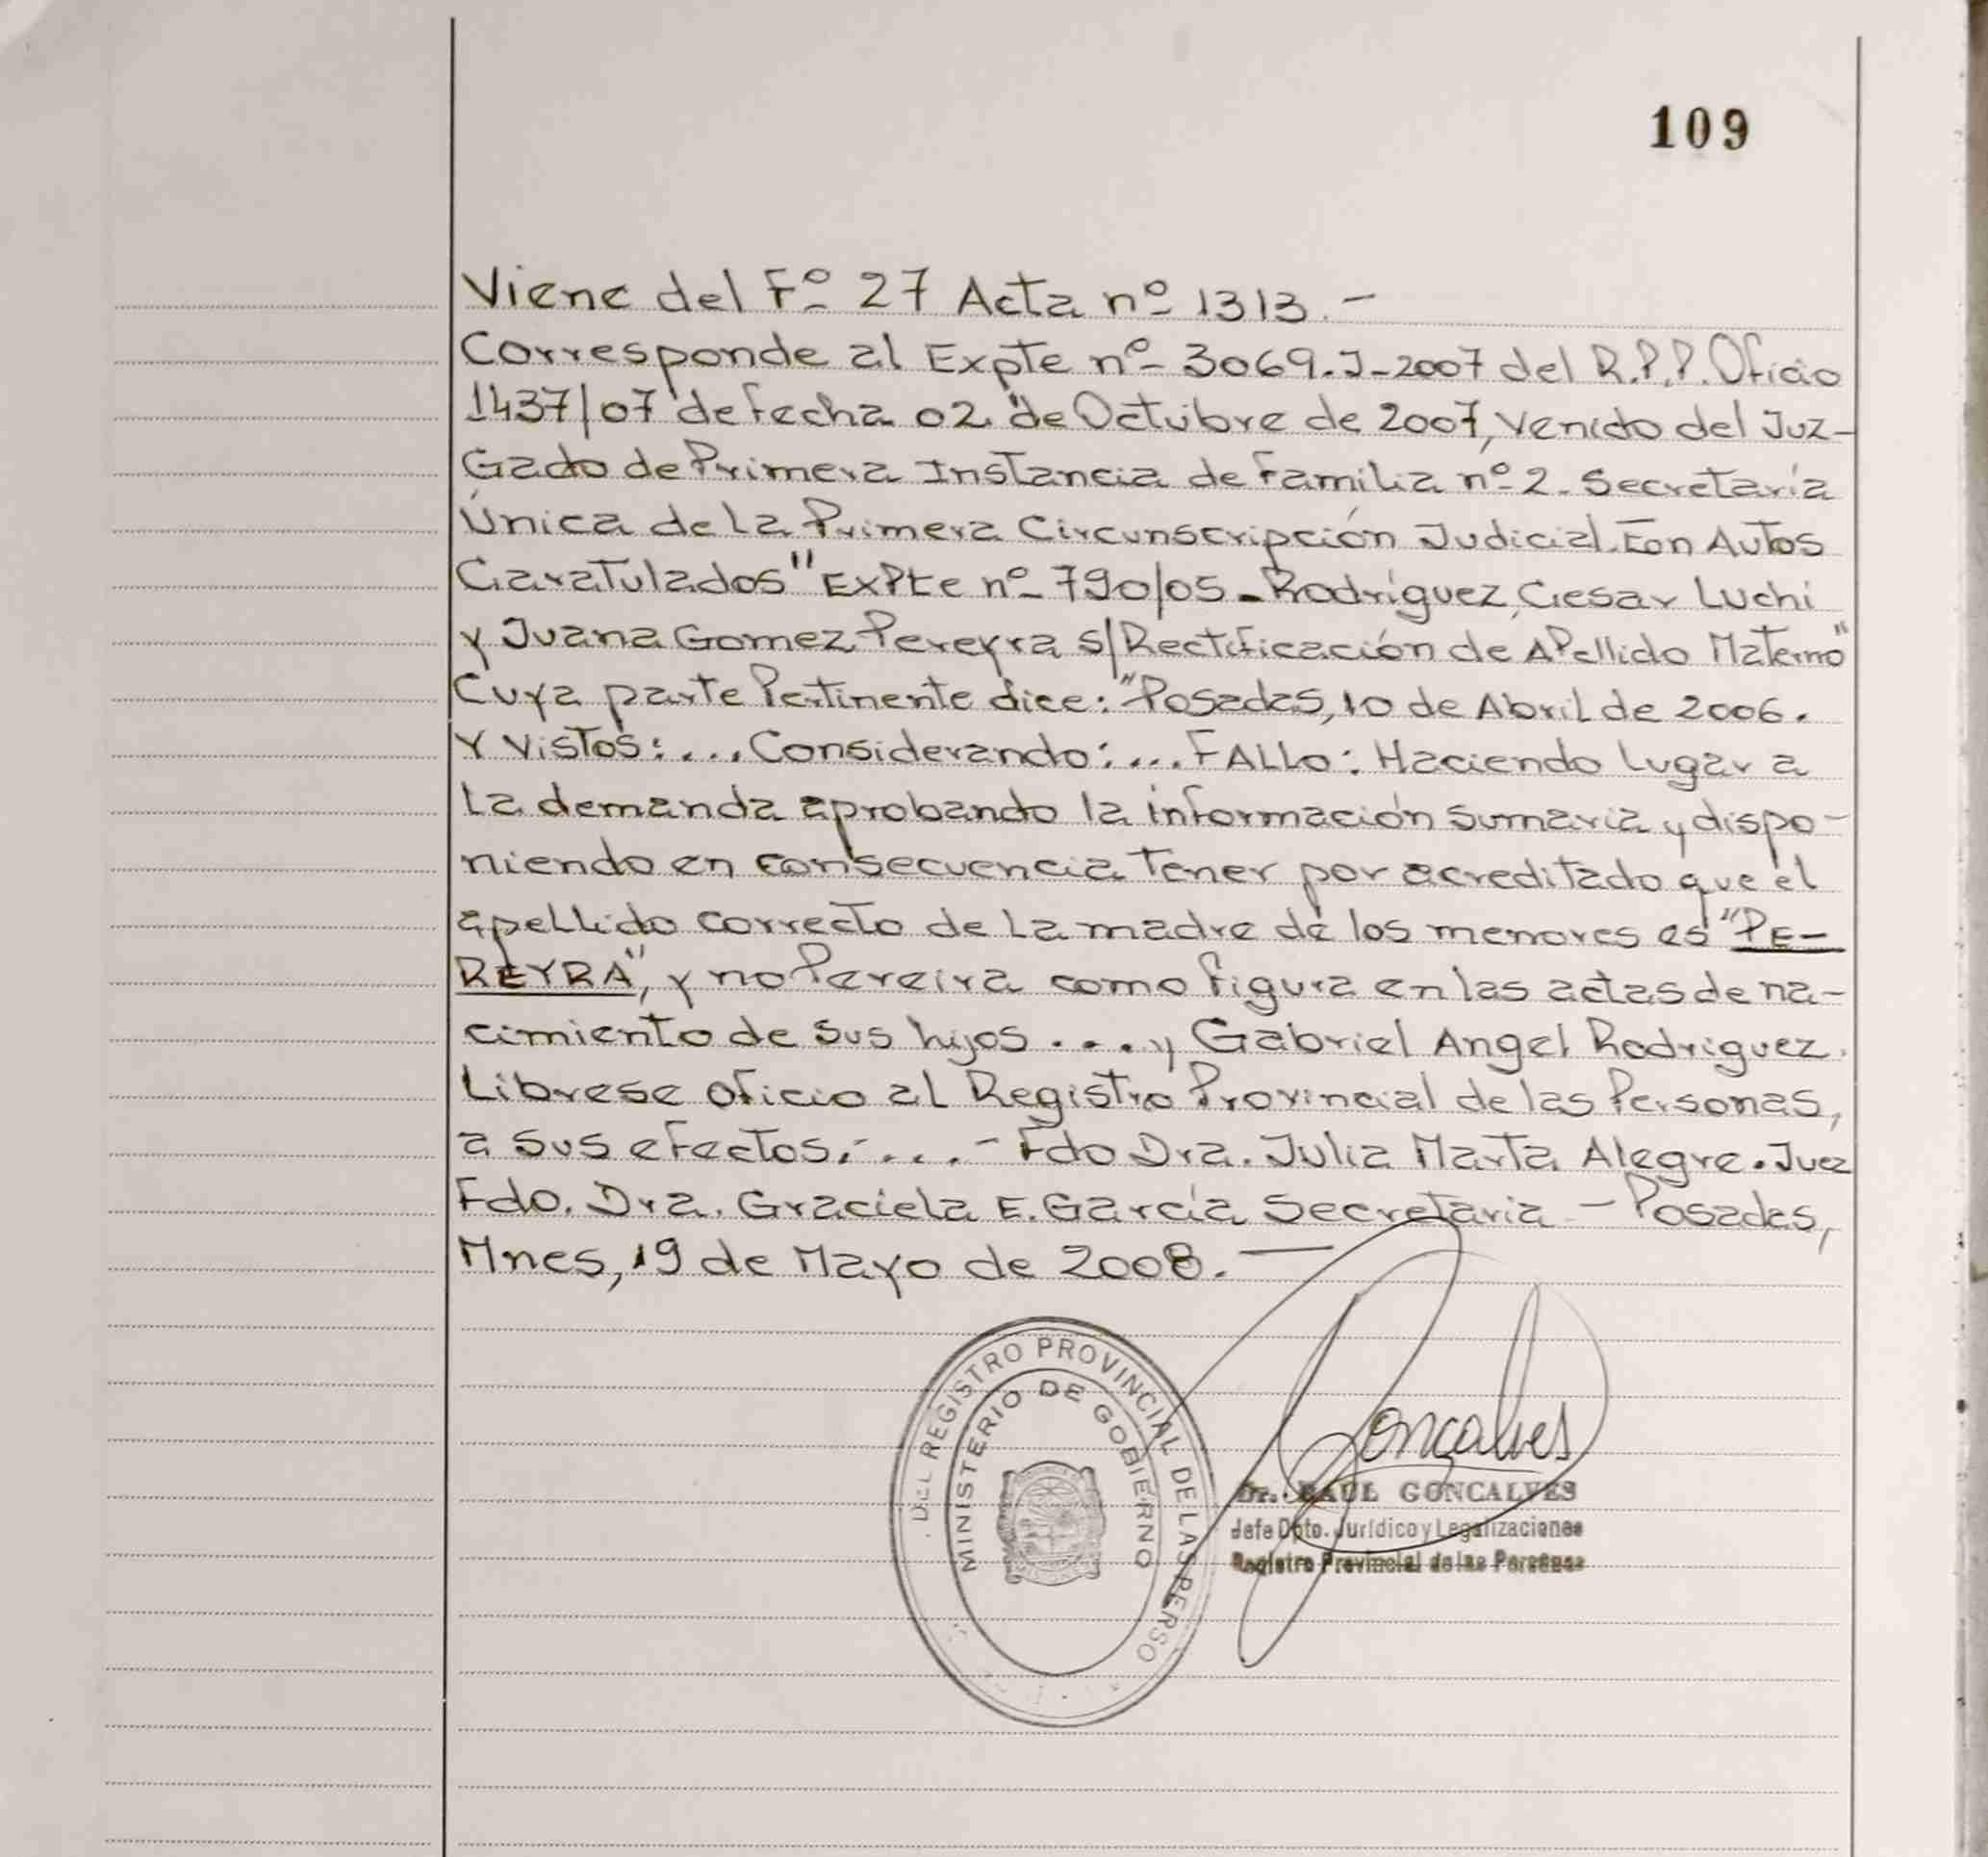 109
Viene del Fº 27 Acta nº 1313.-
Corresponde al Expte nº 3069-J-2007 del R.P.P. Oficio
1437/07 de fecha 02 de Octubre de 2007, venido del Juz-
Gado de Primera Instancia de Familia nº 2. Secretaría
Única de La Primera Circunscripción Judicial. En Autos
Caratulados "Expte nº 790/05 - Rodríguez, Cesar Luchi
y Juana Gomez Pereyra s/Rectificación de Apellido Materno"
Cuya parte Pertinente dice: "Posadas, 10 de Abril de 2006.
Y Vistos: ... Considerando: ... FALLO: Haciendo Lugar a
La demanda aprobando la información sumaria y dispo-
niendo en consecuencia tener por acreditado que el
apellido correcto de La madre de los menores es "PE-
REYRA", y no Pereira como figura en las actas de na-
cimiento de sus hijos .... y Gabriel Angel Rodriguez.
Librese oficio al Registro Provincial de las Personas,
a sus efectos. - ... - Fdo Dra. Julia Marta Alegre. Juez
Fdo. Dra. Graciela E. García Secretaria - Posadas,
Mnes, 19 de Mayo de 2008. —
DEL REGISTRO PROVINCIAL DE LAS PERSO
MINISTERIO DE GOBIERNO
Goncalves
Dr. RAUL GONCALVES
Jefe Dpto. Jurídico y Legalizaciones
Registro Provincial de las Personas